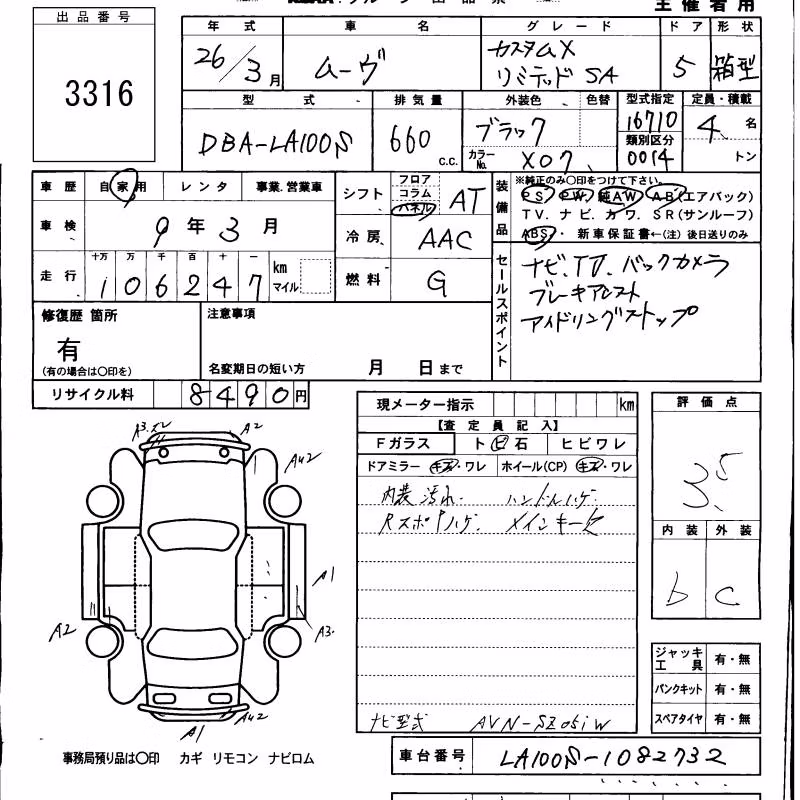 主催者用
出品番号
3316
年式 車名 グレード ドア 形状
26/3月 ムーヴ カスタムX リミテッド SA 5 箱型
型式 排気量 外装色 色替 型式指定 定員・積載
DBA-LA100S 660 C.C. ブラック 16710 4名
類別区分
カラーNo. X07 0014 トン
車歴 自家用 レンタ 事業.営業車
シフト フロア コラム パネル AT
装備品
※純正のみ〇印をつけて下さい。
PS PW 純AW AB(エアバック)
TV. ナビ. カワ. SR(サンルーフ)
ABS・ 新車保証書←(注)後日送りのみ
車検 9年3月
冷房 AAC
走行 十万 万 千 百 十 一
106247 km マイル
燃料 G
セールスポイント
ナビ、TV、バックカメラ
ブレーキアシスト
アイドリングストップ
修復歴 箇所
有
(有の場合は〇印を)
注意事項
名変期日の短い方 月 日まで
リサイクル料 8490円
現メーター指示 km
【査定員記入】
Fガラス トビ石 ヒビワレ
ドアミラー キズ・ワレ ホイール(CP) キズ・ワレ
内装汚れ. ハンドルハゲ.
メインキー欠
評価点
3.5
内装 外装
b c
A3 A2
A42
A1
A2
A3.
A1 A42
ジャッキ工具 有・無
パンクキット 有・無
スペアタイヤ 有・無
ナビ型式 AVN-SZ05iW
事務局預り品は〇印 カギ リモコン ナビロム
車台番号 LA100S-1082732